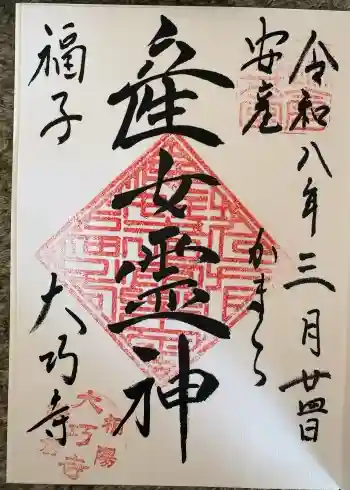 令和八年三月廿四日
安産
かまくら
産女霊神
福子
大巧寺